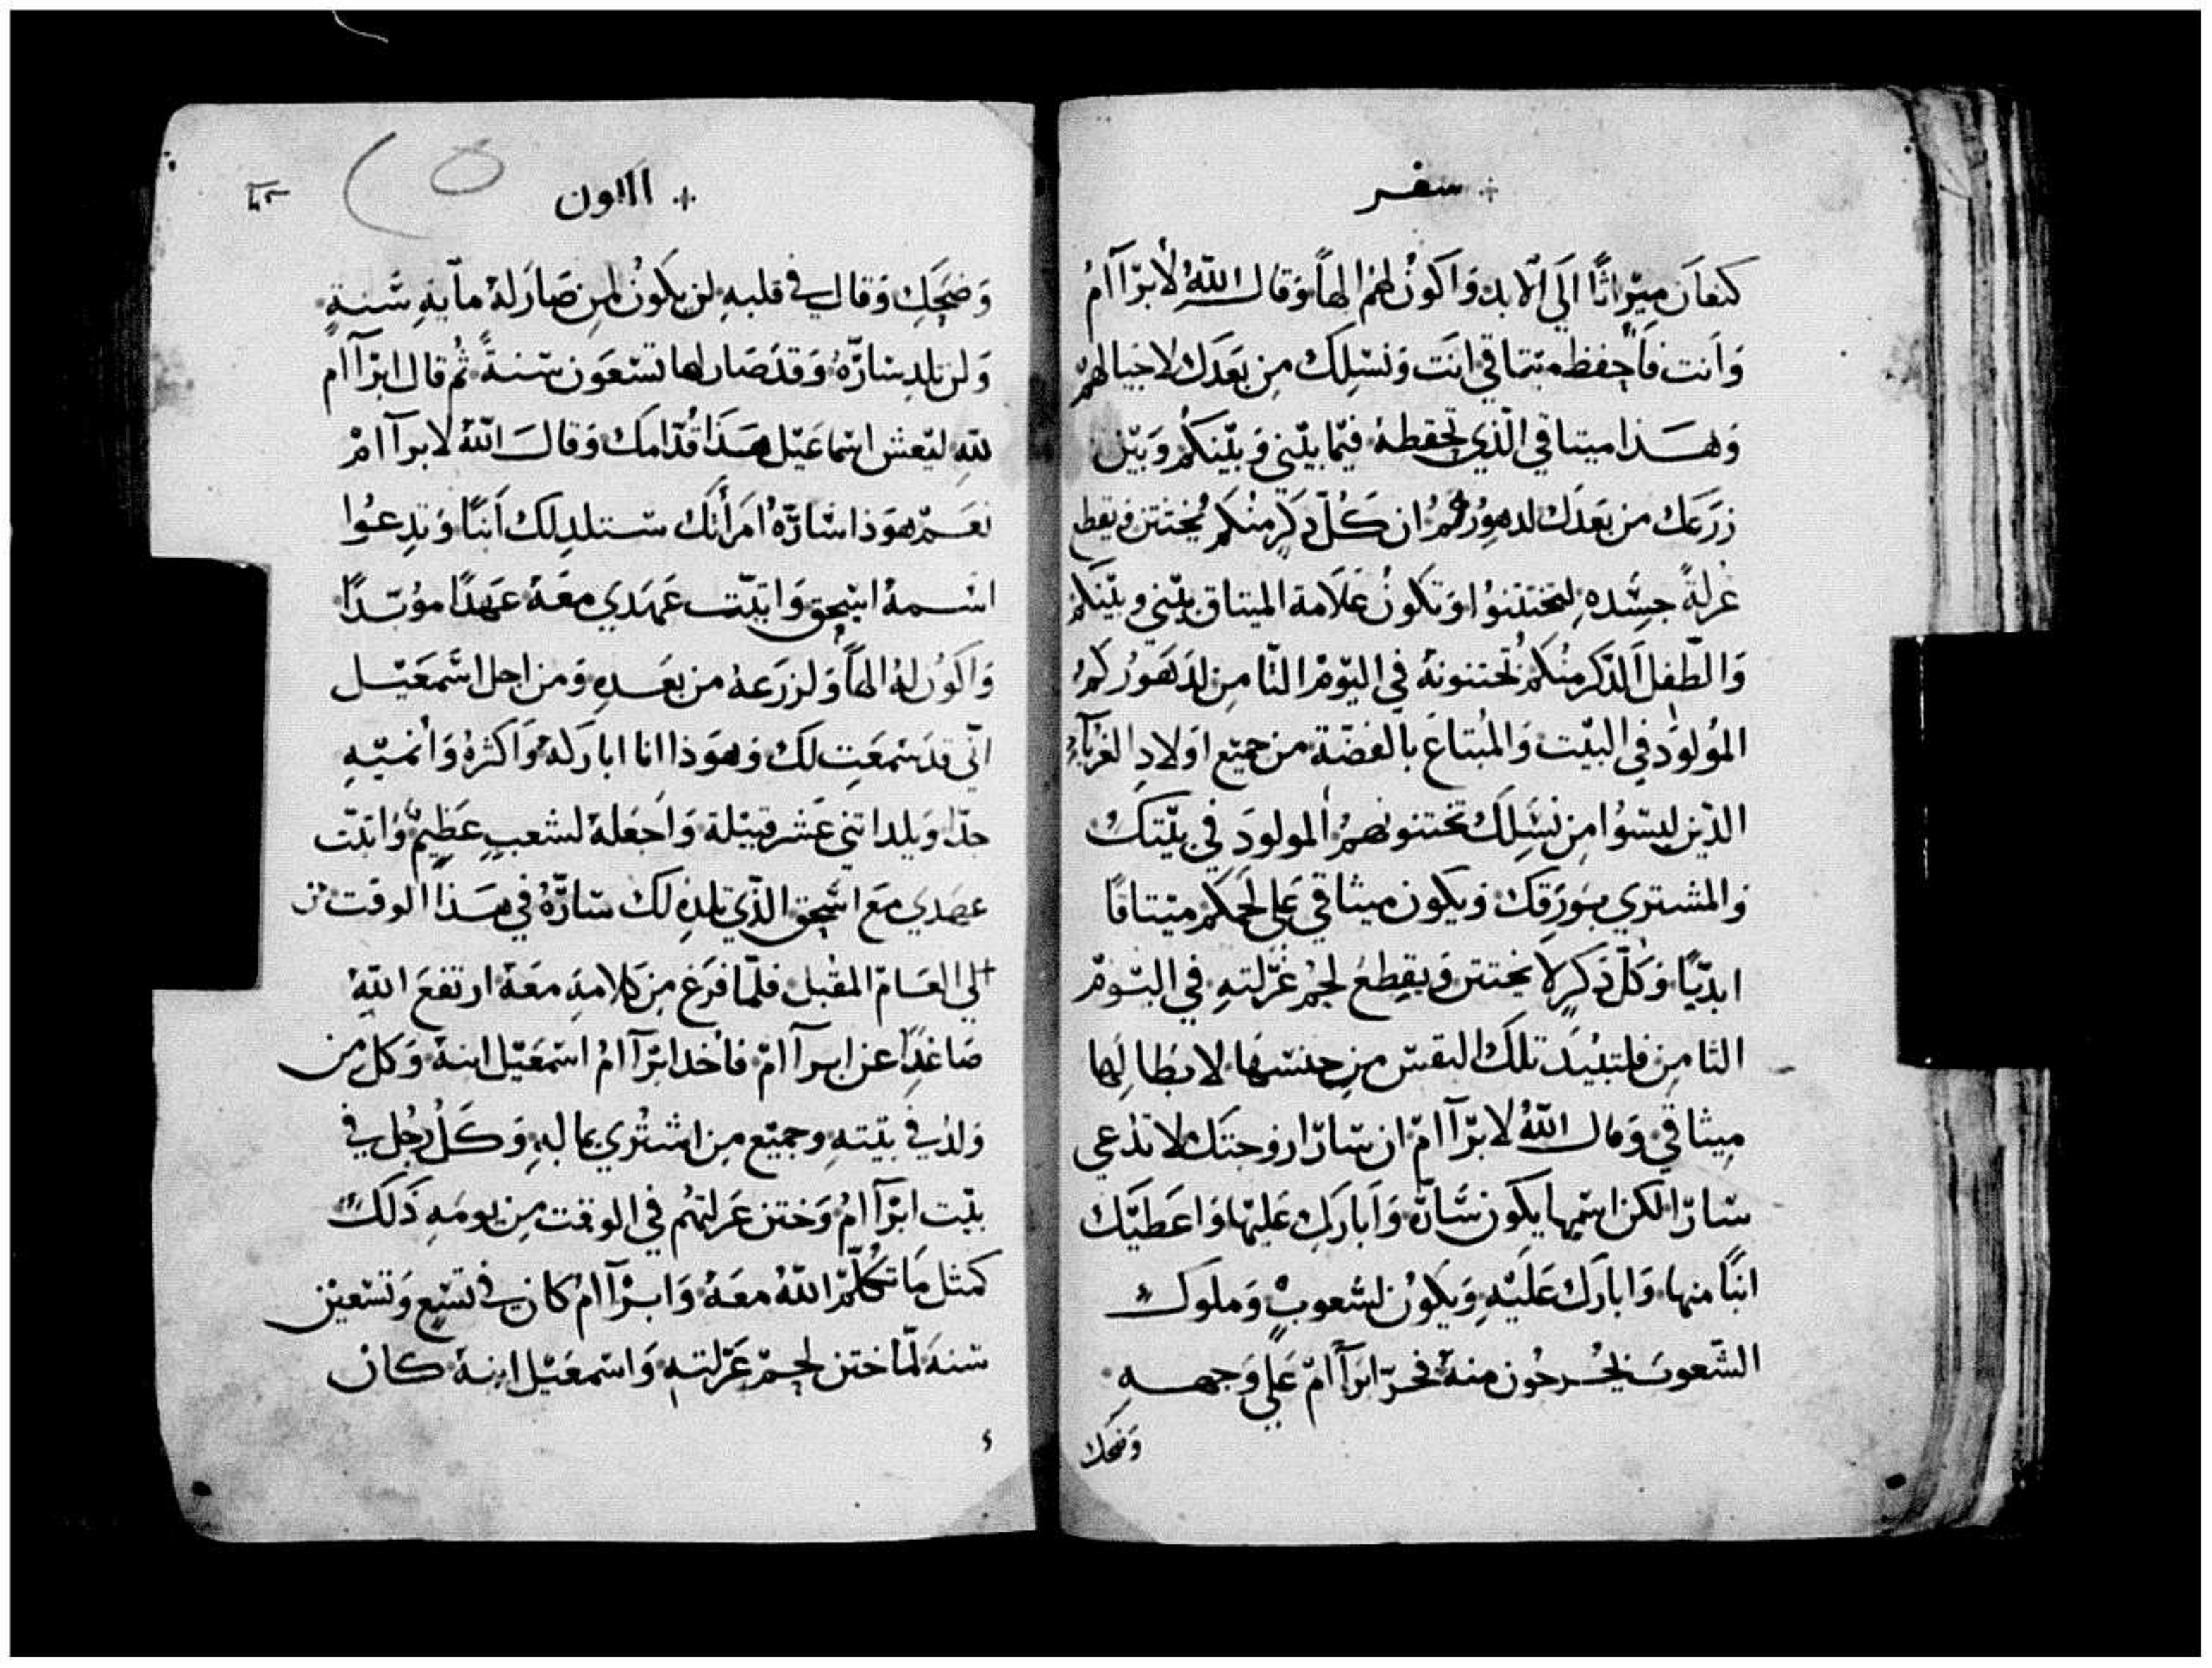 سفر
كنعان ميراثًا الي الابد واكون لهم الهاً وقال الله لابراام
وانت فاحفظ ميتاقي انت ونسلك من بعدك لاجيالهم
وهذا ميتاقي الذي تحفظه فيما بيني وبينكم وبين
زرعك من بعدك لدهوركم ان كل ذكر منكم يختتن ويقطع
غرلة جسده لتختتنوا وتكون علامة الميتاق بيني وبينكم
والطفل الذكر منكم تختنونه في اليوم الثامن لدهوركم
المولود في البيت والمبتاع بالفضة من جميع اولاد الغرباء
الذين ليسوا من نسلك تختنونهم المولود في بيتك
والمشتري بورقك ويكون ميثاقي علي لحمكم ميتاقًا
ابديًا وكل ذكر لا يختتن ويقطع لحم غرلته في اليوم
الثامن فلتبيد تلك النفس من جنسها لابطالها
ميثاقي وقال الله لابراام ان سارا زوجتك لا تدعي
سارا لكن اسمها يكون سارة وابارك عليها واعطيك
ابنًا منها وابارك عليه ويكون لشعوب وملوك
الشعوب يخرجون منه فخر ابراام علي وجهه
وضحك
الكون
وضحك وقال في قلبه لن يكون لمن صار له ماية سنة
ولن تلد ساره وقد صار لها تسعون سنة ثم قال ابراام
لله ليعش اسماعيل هذا قدامك وقال الله لابراام
نعم هوذا ساره امرأتك ستلد لك ابنًا وتدعوا
اسمه اسحق واتبت عهدي معه عهدًا موبدًا
واكون له الهاً ولزرعه من بعده ومن اجل اسمعيل
اني قد سمعت لك وهوذا انا اباركه واكثره وانميه
جدًا ويلد اتني عشر قبيلة واجعله لشعب عظيم واتبت
عهدي مع اسحق الذي تلده لك ساره في هذا الوقت من
الي العام المقبل فلما فرغ من كلامه معه ارتفع الله
صاعدًا عن ابراام فأخد ابراام اسمعيل ابنه وكل من
ولد في بيته وجميع من اشتري بماله وكل رجل في
بيت ابراام وختن غرلتهم في الوقت من يومه ذلك
كمثل ما تكلم الله معه وابراام كان في تسع وتسعين
سنه لما ختن لحم غرلته واسمعيل ابنه كان